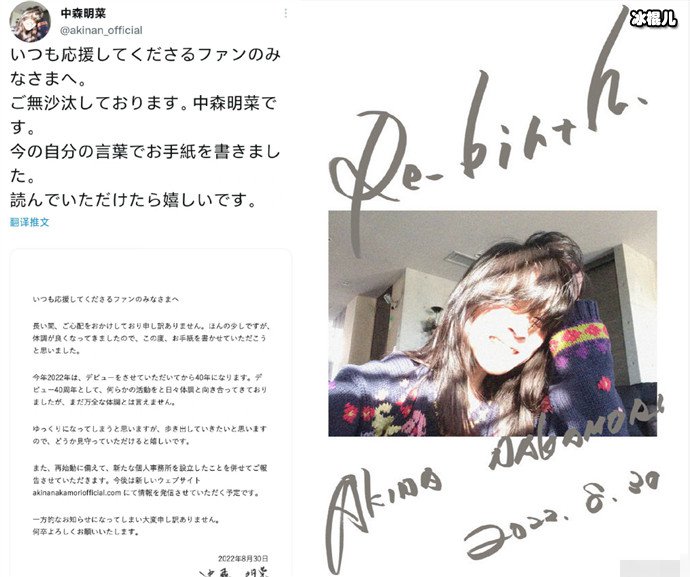 中森明菜
@akinan_official
いつも応援してくださるファンのみ
なさまへ。
ご無沙汰しております。中森明菜で
す。
今の自分の言葉でお手紙を書きまし
た。
読んでいただけたら嬉しいです。
翻译推文
いつも応援してくださるファンのみなさまへ
長い間、ご心配をおかけしており申し訳ありません。ほんの少しですが、
体調が良くなってきましたので、この度、お手紙を書かせていただこう
と思いました。
今年2022年は、デビューをさせていただいてから40年になります。デ
ビュー40周年として、何らかの活動をと日々体調と向き合ってきてお
りましたが、まだ万全な体調とは言えません。
ゆっくりになってしまうと思いますが、歩き出していきたいと思います
ので、どうか見守っていただけると嬉しいです。
また、再始動に備えて、新たな個人事務所を設立したことを併せてご報
告させていただきます。今後は新しいウェブサイト
akinanakamoriofficial.com にて情報を発信させていただく予定です。
一方的なお知らせになってしまい大変申し訳ありません。
何卒よろしくお願いいたします。
2022年8月30日
中森 明菜
冰棍儿
Re-birth.
AKINA NAKAMORI
2022.8.30